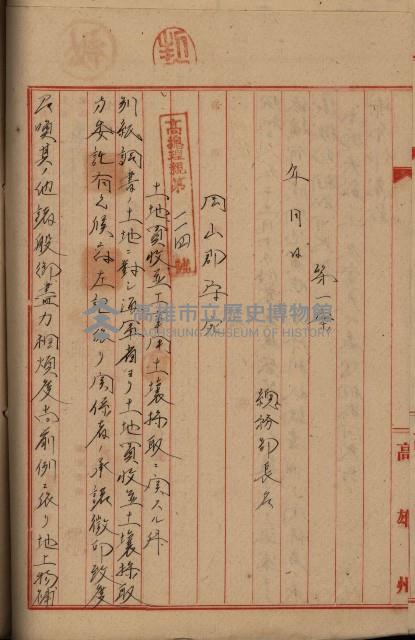 第一案
年月日
總務部長名
岡山郡守宛
高總理親第一一四號
土地買收並工事用土壤採取ニ関スル件
別紙調書ノ土地ニ對シ海軍省ヨリ土地買收並土壤採取
方委託有之候ニ付左記ニ依リ関係者ノ承諾徵印致度
ニ付其ノ他諸般御盡力相煩度尚前例ニ依リ地上物補
高雄州
高雄市立歷史博物館
KAOHSIUNG MUSEUM OF HISTORY